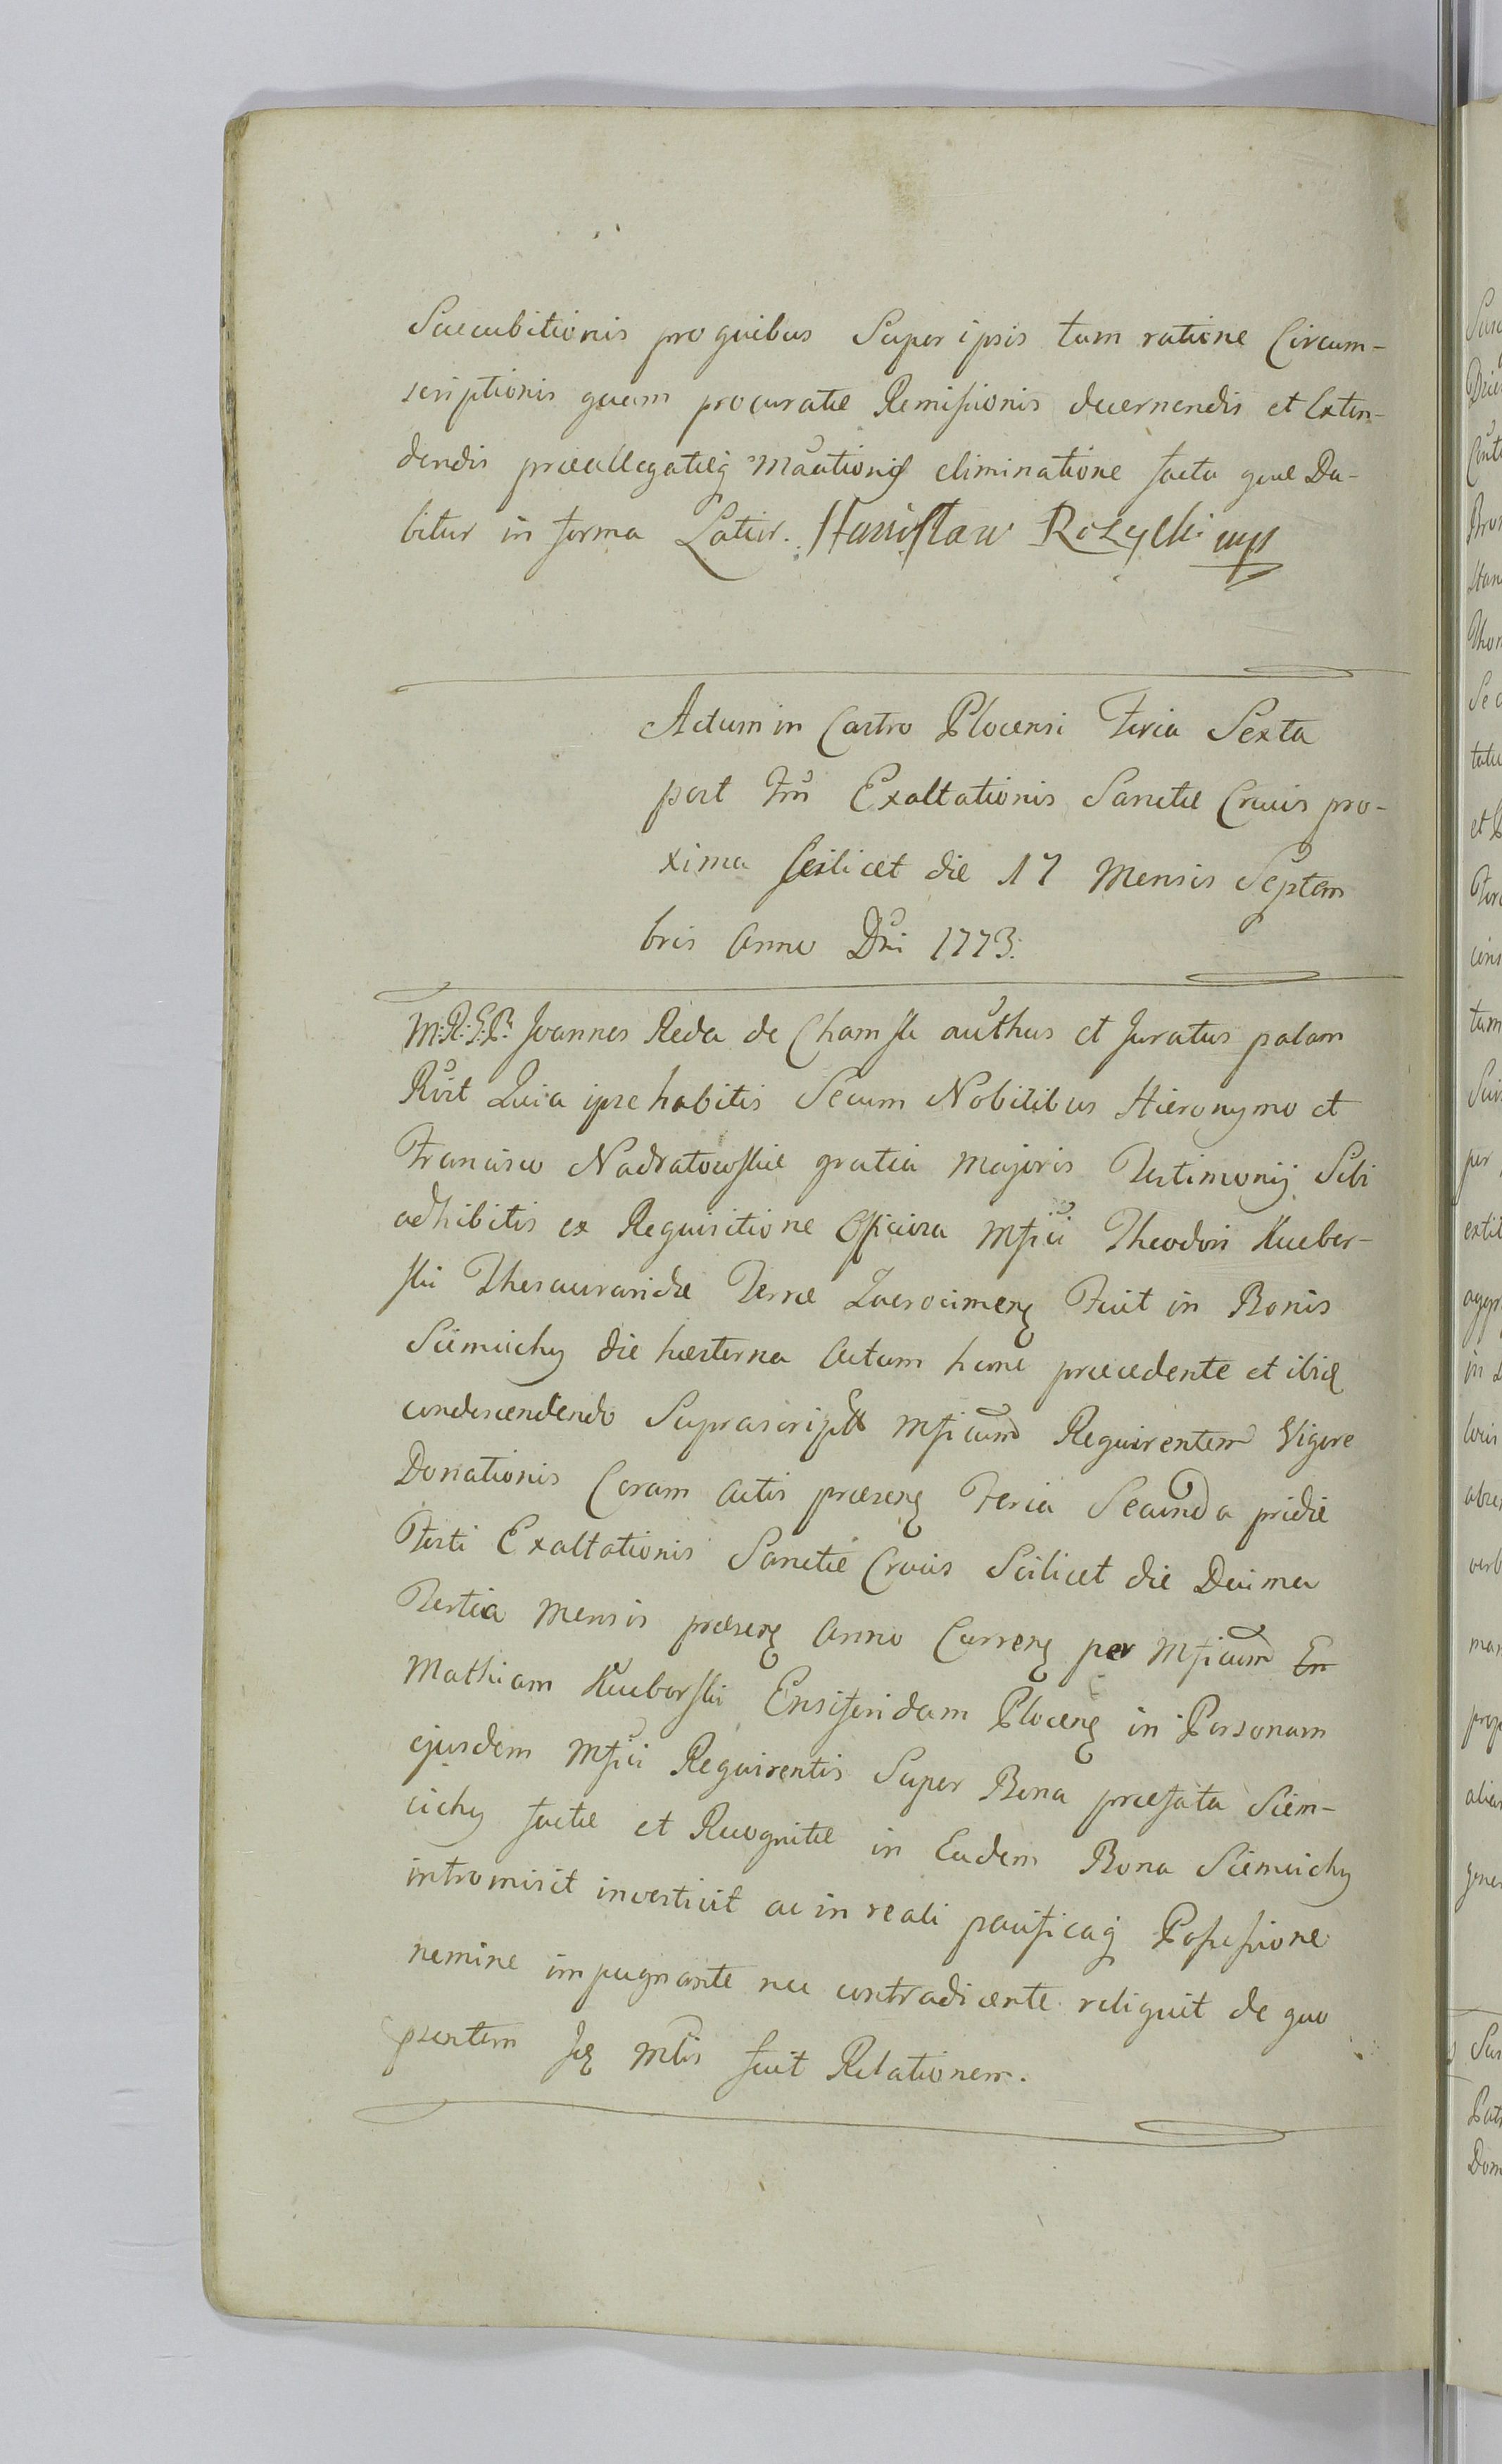 Succubitionis pro quibus Super ipsis tum ratione Circum-
scriptionis quam procuratæ Remissionis decernendis et Exten-
dendis præallegatæq Mãtionis eliminatione facta quæ Da-
bitur in forma Latior. Stanisław Rozycki mp
Actum in Castro Plocensi Feria Sexta
post Ftũ Exaltationis Sanctæ Crucis pro-
xima scilicet die 17 Mensis Septem
bris Anno Dñi 1773.
M:R:G:P: Joannes Reda de Chamsk authus et Juratus palam
Rũit Quia ipse habitis Secum Nobilibus Hieronymo et
Francisco Nadratowskie gratia majoris Testimonij Sibi
adhibitis ex Requisitione Officiosa Mfici Theodori Kuebor-
ski Thesauraridæ Terræ Zacrocimen Fuit in Bonis
Siemiichy die hæsterna Actum hunc præcedente et ibid
condescendendo Suprascriptt Mficum Requirentem Vigore
Donationis Coram Actis præsen Feria Secunda pridie
Festi Exaltationis Sanctæ Crucis Scilicet die Decima
Tertia Mensis præsen Anno Curren per Mficum En
Mathiam Kueborski Ensiferidam Plocen in Personam
ejusdem Mfici Requirentis Super Bona præfata Siem-
iichy factæ et Recognitæ in Eadem Bona Siemiichy
intromisit investivit ac in reali pacificaq Possessione
nemine impugnante nec contradicente reliquit de quo
psentem Mlis fecit Relationem.